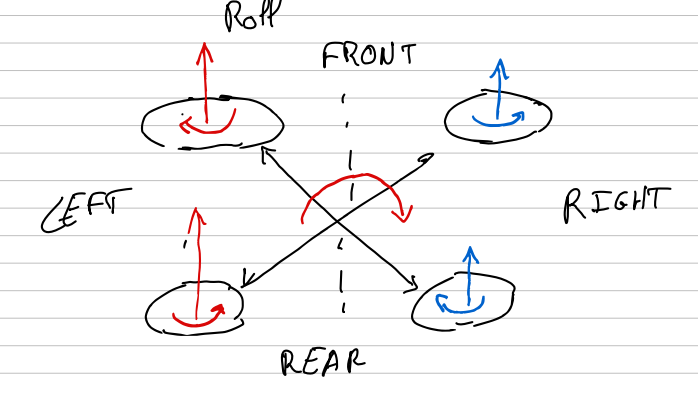 Roll
FRONT
LEFT
RIGHT
REAR